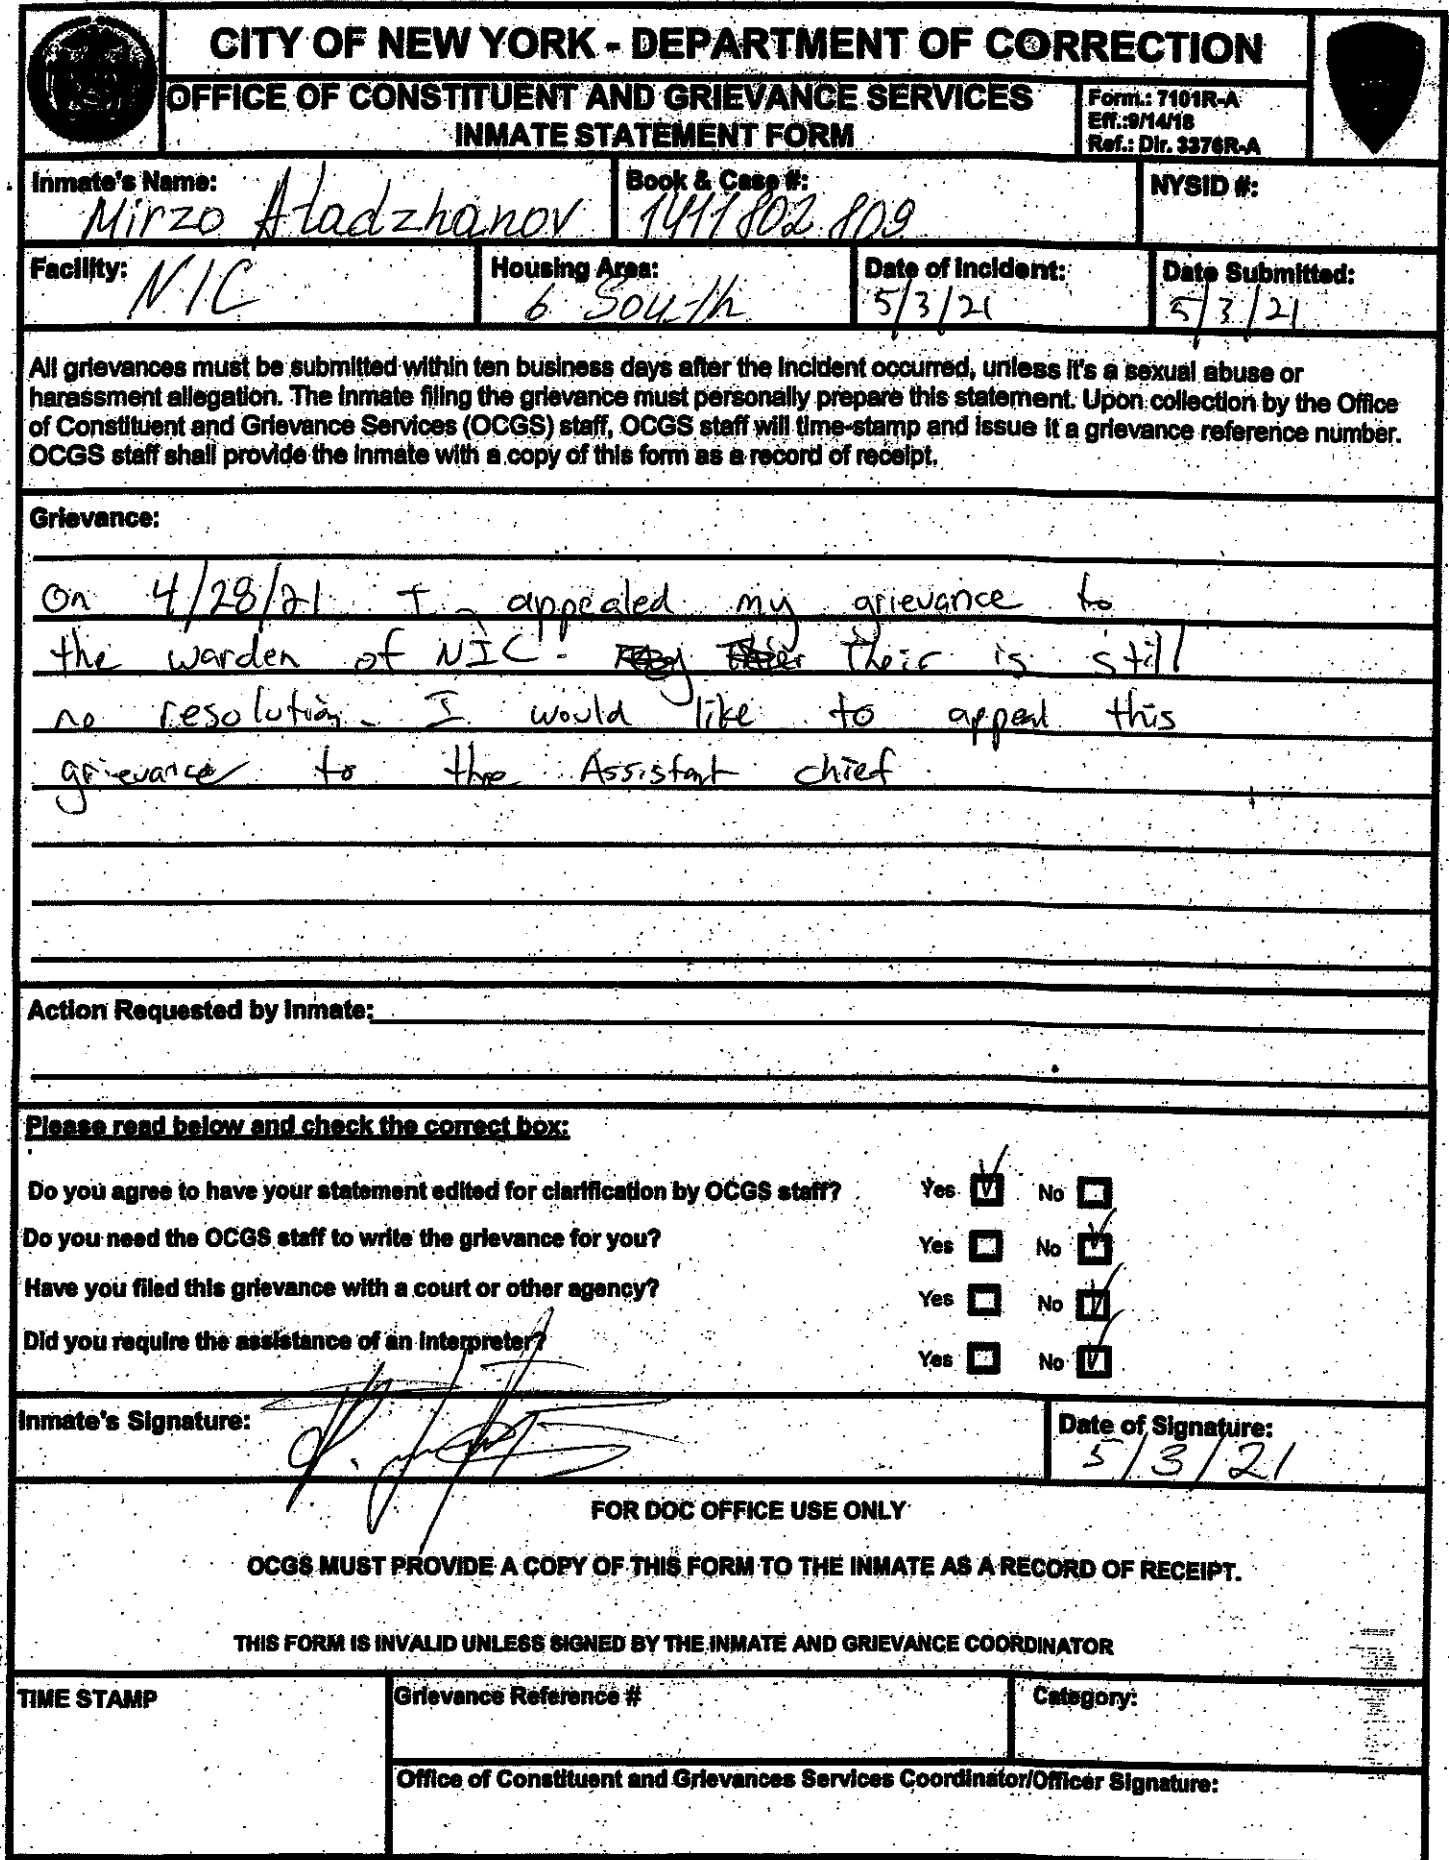 CITY OF NEW YORK - DEPARTMENT OF CORRECTION
OFFICE OF CONSTITUENT AND GRIEVANCE SERVICES
INMATE STATEMENT FORM
Form.: 7101R-A
Eff.:9/14/18
Ref.: Dir. 3376R-A
Inmate's Name:
Mirzo Atadzhanov
Book & Case #:
1411802809
NYSID #:
Facility:
NIC
Housing Area:
6 South
Date of Incident:
5/3/21
Date Submitted:
5/3/21
All grievances must be submitted within ten business days after the incident occurred, unless it's a sexual abuse or
harassment allegation. The inmate filing the grievance must personally prepare this statement. Upon collection by the Office
of Constituent and Grievance Services (OCGS) staff, OCGS staff will time-stamp and issue it a grievance reference number.
OCGS staff shall provide the inmate with a copy of this form as a record of receipt.
Grievance:
On 4/28/21 I appealed my grievance to
the warden of NIC. Their is still
no resolution. I would like to appeal this
grievance to the Assistant chief
Action Requested by Inmate:
Please read below and check the correct box:
Do you agree to have your statement edited for clarification by OCGS staff? Yes No
Do you need the OCGS staff to write the grievance for you? Yes No
Have you filed this grievance with a court or other agency? Yes No
Did you require the assistance of an interpreter? Yes No
Inmate's Signature:
Date of Signature:
5/3/21
FOR DOC OFFICE USE ONLY
OCGS MUST PROVIDE A COPY OF THIS FORM TO THE INMATE AS A RECORD OF RECEIPT.
THIS FORM IS INVALID UNLESS SIGNED BY THE INMATE AND GRIEVANCE COORDINATOR
TIME STAMP
Grievance Reference #
Category:
Office of Constituent and Grievances Services Coordinator/Officer Signature: